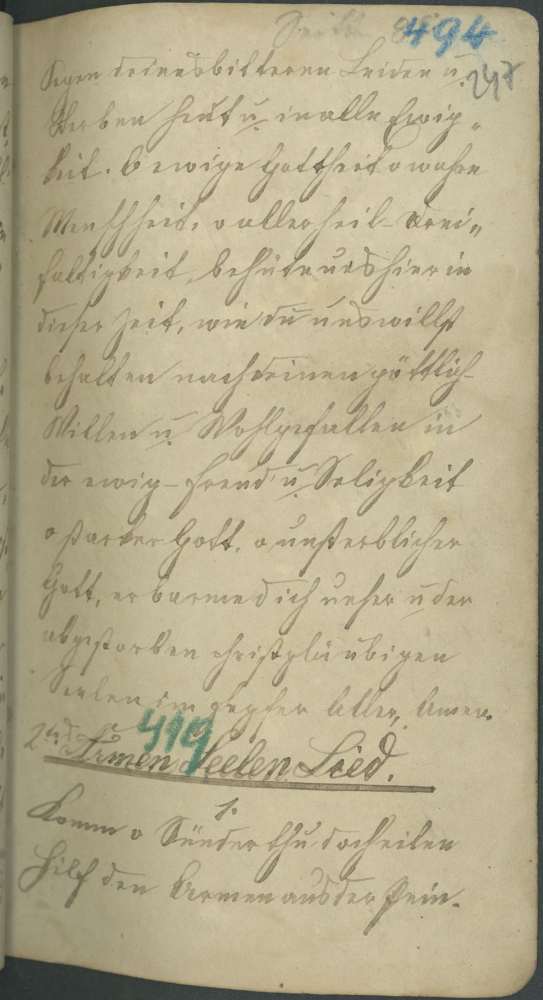 Seite 494
247
Segen deines bitteren Leiden u.
Sterben heut u. in alle Ewig„
keit. O ewige Gottheit o wahre
Menschheit, o allerheil- Drei„
faltigkeit, behüte uns hier in
dieser Zeit, wie du uns willst
behalten nach deinen göttlich-
Willen u. Wohlgefallen in
der ewig- Freud u. Seligkeit
o starker Gott, o unsterblicher
Gott, erbarme dich unser u der
abgestorben christgläubigen
Seelen im Aller, Amen.
419
2tes Armen Seelen Lied.
1.
Komm o Sünder thu doch eilen
Hilf den Armen aus der Pein.